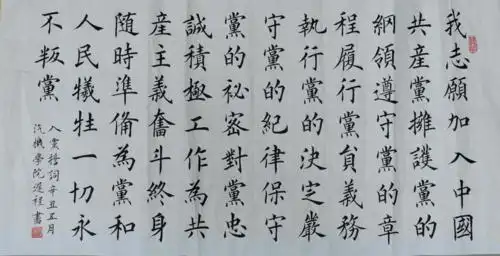 我志願加入中國
共産黨擁護黨的
綱領遵守黨的章
程履行黨員義務
執行黨的決定嚴
守黨的紀律保守
黨的祕密對黨忠
誠積極工作為共
産主義奮斗終身
隨時準備為黨和
人民犧牲一切永
不叛黨
入黨誓詞辛丑五月
汽機學院程書